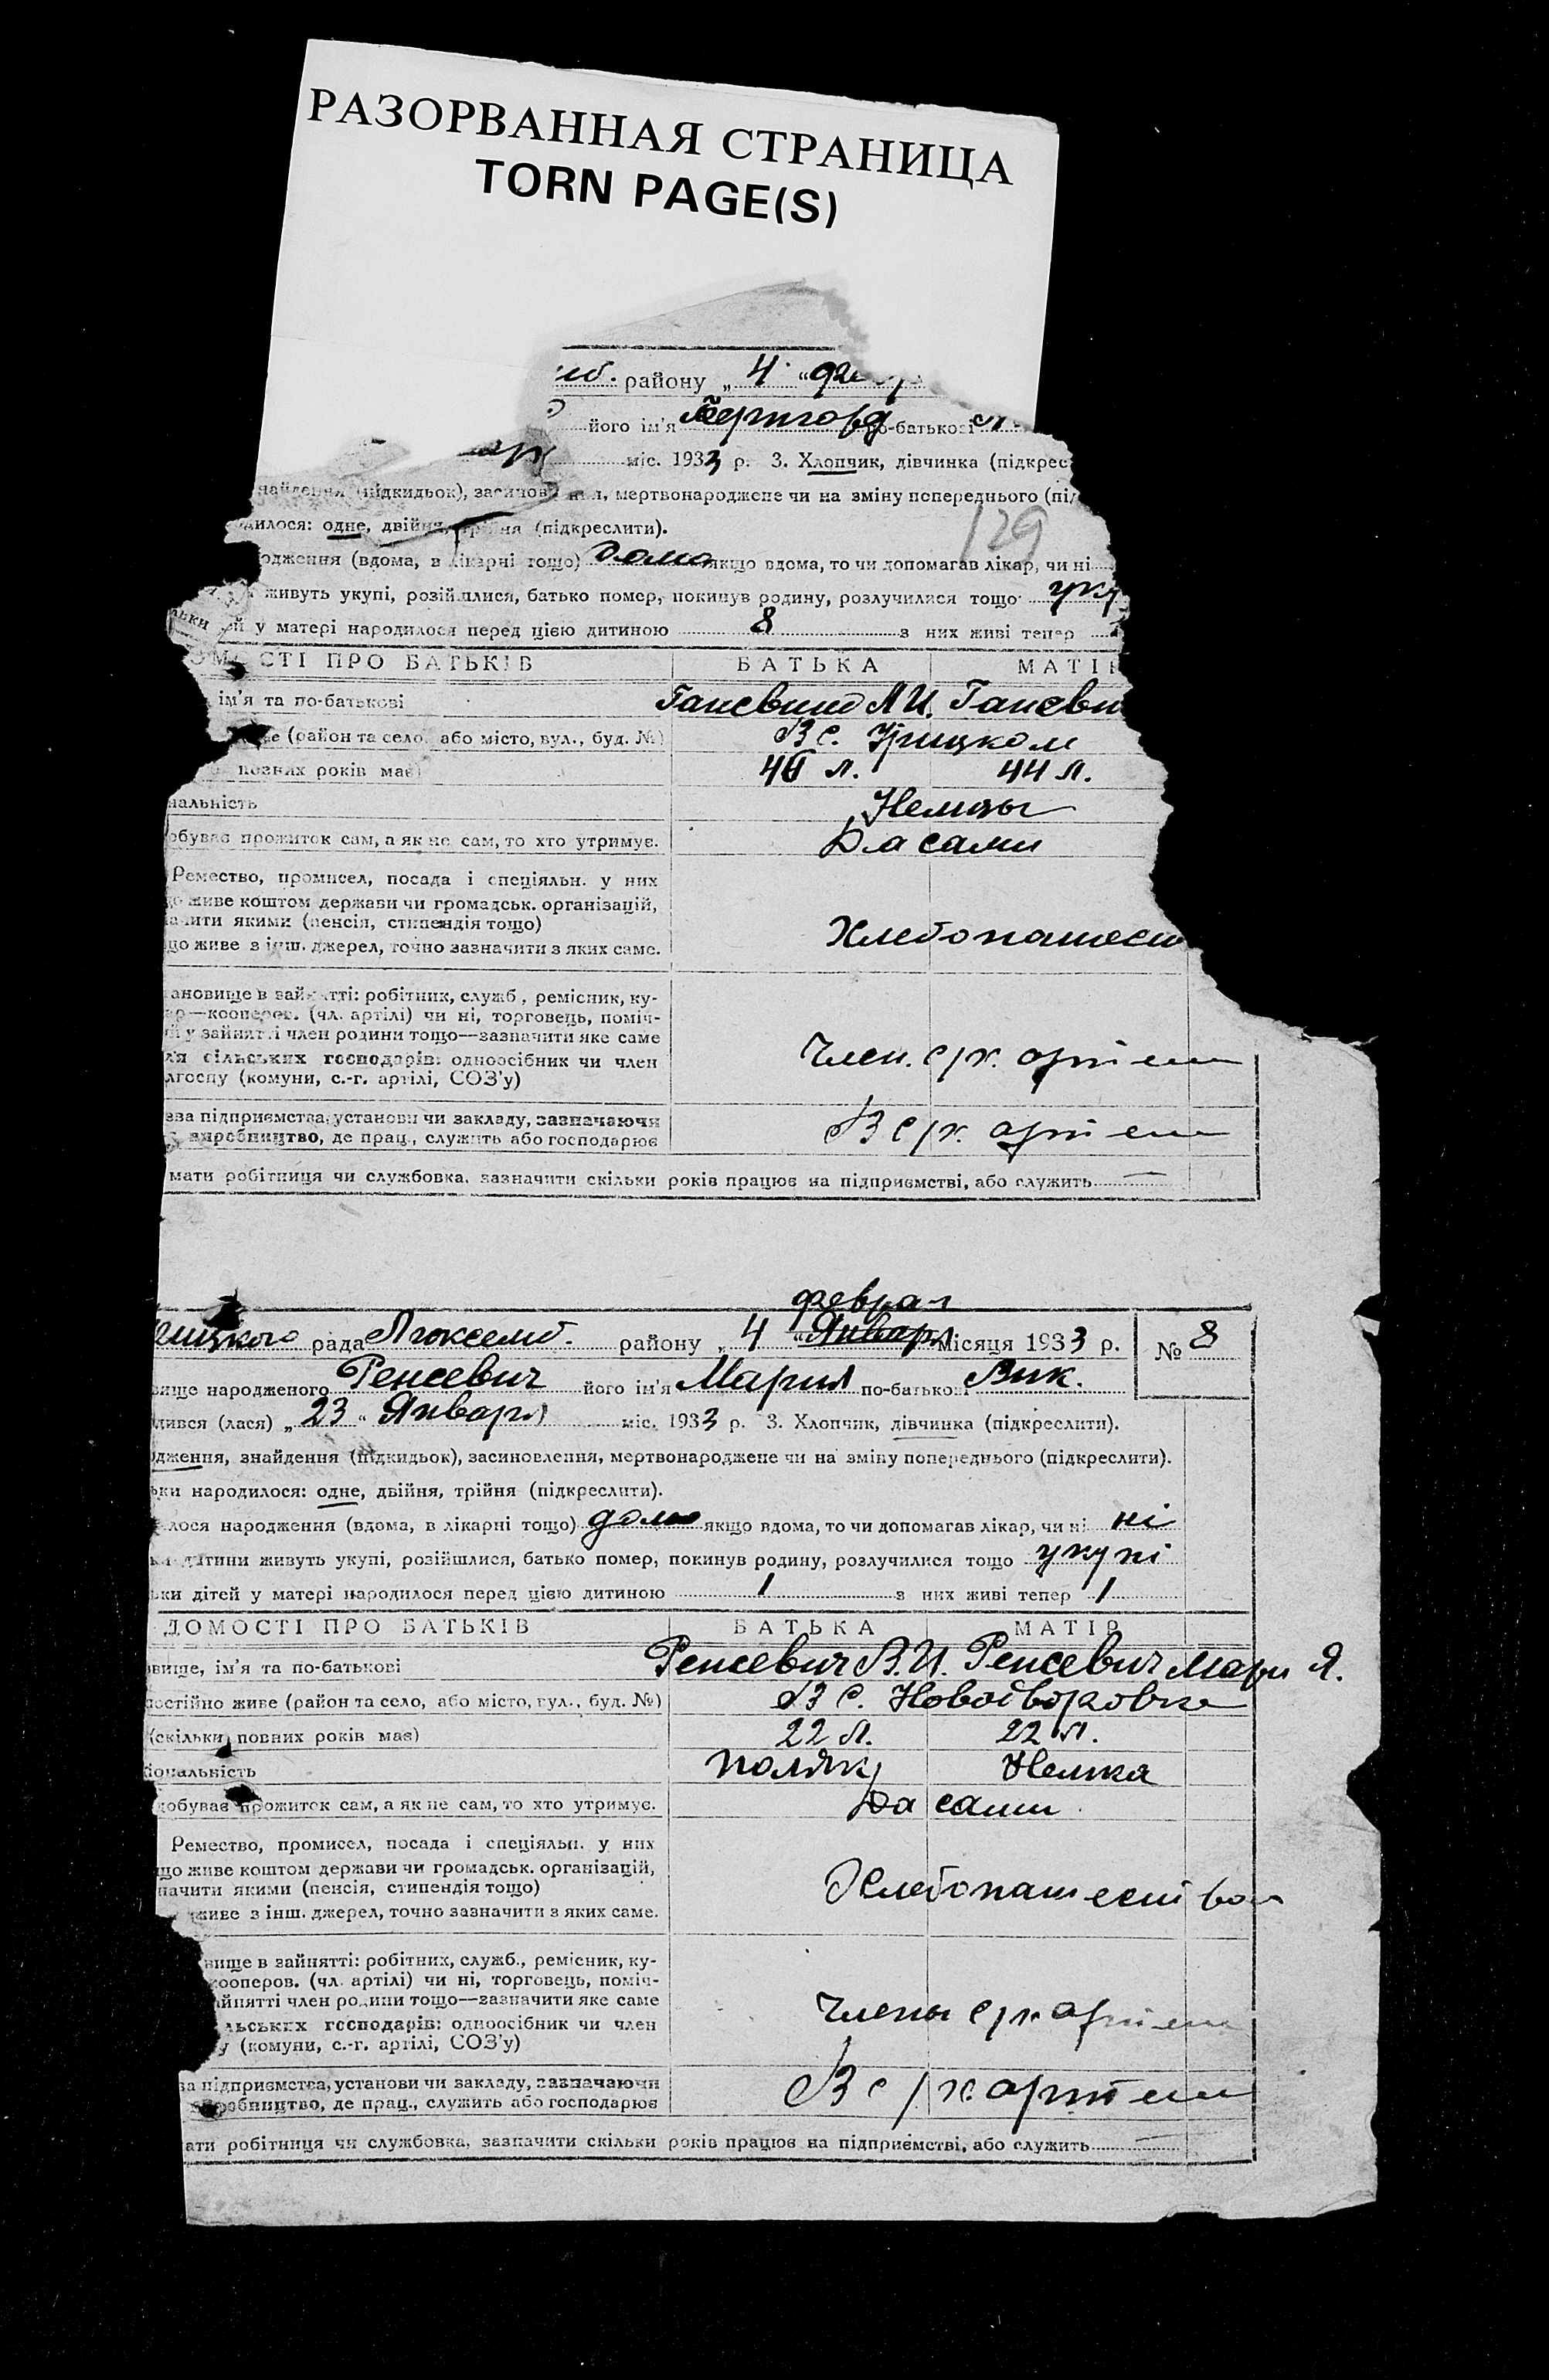 РАЗОРВАННАЯ СТРАНИЦА
TORN PAGE(S)
району „ 4 “
його ім'я по-батькові
міс. 1933 р. 3. Хлопчик, дівчинка
(підкидьок), мертвонароджене чи на зміну попереднього
одне, двійня, (підкреслити).
129
(вдома, в лікарні тощо) дома якщо вдома, то чи допомагав лікар, чи ні
живуть укупі, розійшлися, батько помер, покинув родину, розлучилися тощо
у матері народилося перед цією дитиною 8 з них живі тепер
ПРО БАТЬКІВ БАТЬКА
ім'я та по-батькові А. И.
(район та село, або місто, вул., буд. №) В с.
повних років має) л. 44 л.
Немцы
прожиток сам, а як не сам, то хто утримує. Да сами
Ремество, промисел, посада і спеціяльн. у них
живе коштом держави чи громадськ. організацій,
якими (пенсія, стипендія тощо)
живе з інш. джерел, точно зазначити з яких саме.
в зайнятті: робітник, служб., ремісник, ку-
кооперов. (чл. артілі) чи ні, торговець, поміч-
у зайнятті член родини тощо—зазначити яке саме
сільських господарів: одноосібник чи член Член. с/х. артели
(комуни, с.-г. артілі, СОЗ'у)
підприємства, установи чи закладу, зазначаючи
виробництво, де прац., служить або господарює В с/х. артели
мати робітниця чи службовка, зазначити скільки років працює на підприємстві, або служить —
феврал
рада Люксемб. району „ 4 “ Января місяця 1933 р. № 8
народженого Ренсевич його ім'я Мария по-батькові Вик.
(лася) „ 23 “ Января міс. 1933 р. 3. Хлопчик, дівчинка (підкреслити).
знайдення (підкидьок), засиновлення, мертвонароджене чи на зміну попереднього (підкреслити).
народилося: одне, двійня, трійня (підкреслити).
народження (вдома, в лікарні тощо) дома якщо вдома, то чи допомагав лікар, чи ні ні
дитини живуть укупі, розійшлися, батько помер, покинув родину, розлучилися тощо укупі
дітей у матері народилося перед цією дитиною 1 з них живі тепер 1
ДОМОСТІ ПРО БАТЬКІВ БАТЬКА МАТІР
ім'я та по-батькові Ренсевич В. И. Ренсевич Мари Я.
постійно живе (район та село, або місто, вул., буд. №) В с.
(скільки повних років має) 22 л. 22 л.
поляк Немка
прожиток сам, а як не сам, то хто утримує. Да сами
Ремество, промисел, посада і спеціяльн. у них
що живе коштом держави чи громадськ. організацій,
якими (пенсія, стипендія тощо) Хлебопашество
живе з інш. джерел, точно зазначити з яких саме.
в зайнятті: робітник, служб., ремісник, ку-
кооперов. (чл. артілі) чи ні, торговець, поміч-
член родини тощо—зазначити яке саме
господарів: одноосібник чи член Члены с/х артели
(комуни, с.-г. артілі, СОЗ'у)
підприємства, установи чи закладу, зазначаючи
де прац., служить або господарює В с/х. артели
робітниця чи службовка, зазначити скільки років працює на підприємстві, або служить —